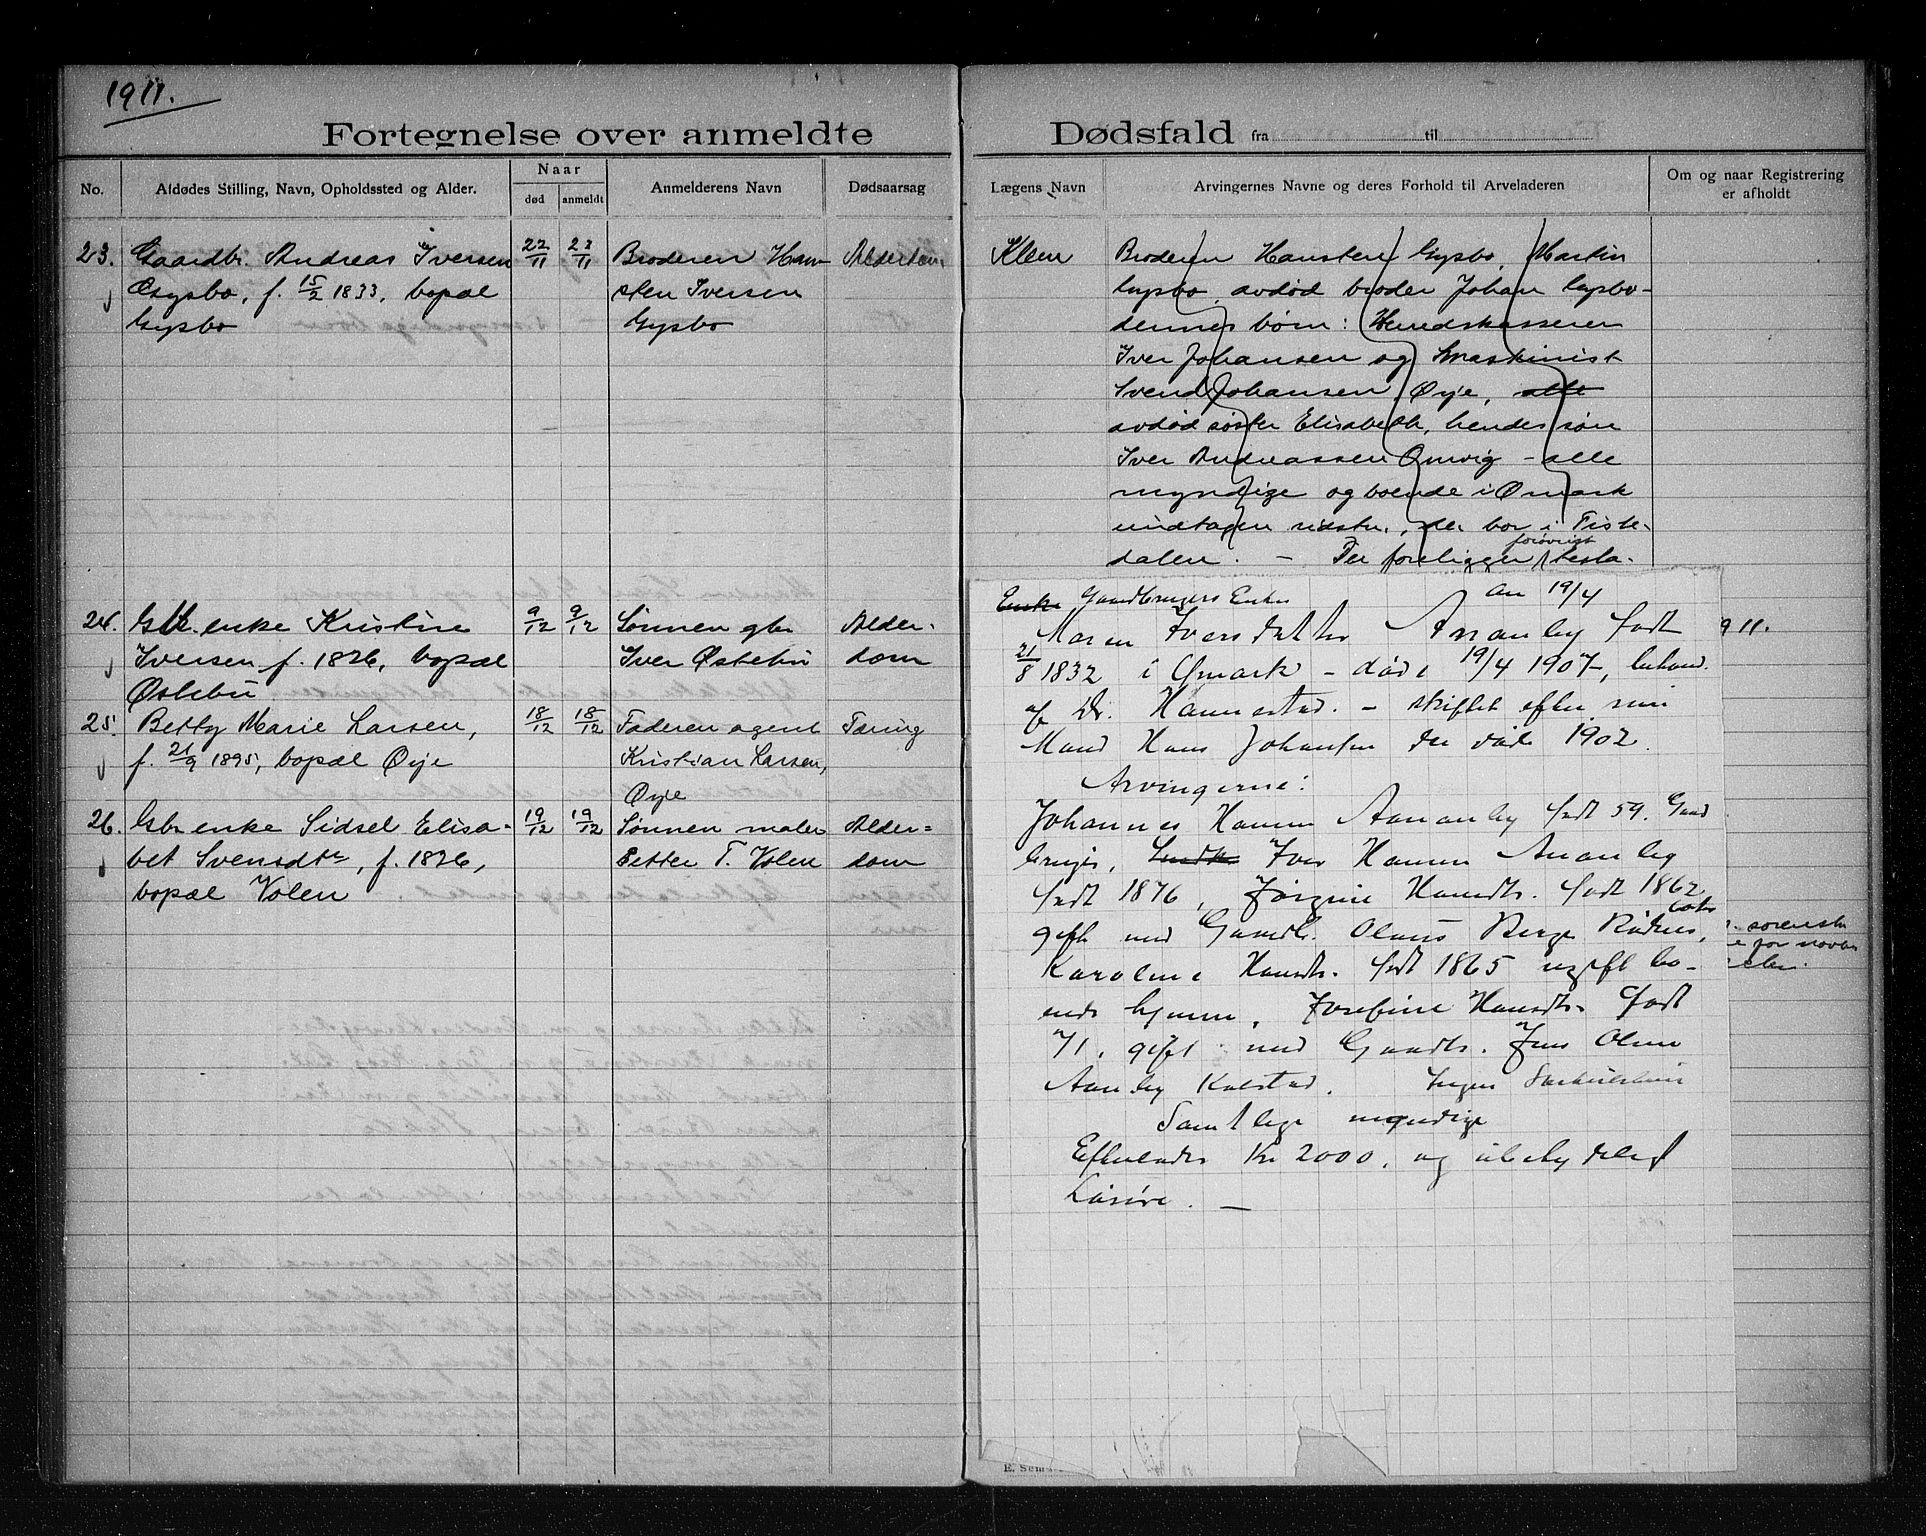 1911.
Fortegnelse over anmeldte Dødsfald fra til
No.
Afdødes Stilling, Navn, Opholdssted og Alder.
Naar
død
anmeldt
Anmelderens Navn
Dødsaarsag
Lægens Navn
Arvingernes Navne og deres Forhold til Arveladeren
Om og naar Registrering
er afholdt
23. Gaardbr. Andreas Iversen
Gysbo, f. 15/2 1833, bopæl
Gysbo
22/11
23/11
Broderen Han-
sten Iversen
Gysbo
Alderdom
Klem
Broderen Hansten Gysbo, Martin
Gysbo, avdød broder Johan Gysbo-
dennes børn: Herredskasserer
Iver Johansen og maskinist
Svend Johansen Ørje, alle
avdød søster Elisabeth, hendes søn
Iver Andreassen Omvig - alle
myndige og boende i Ømark
undtagen sidstn., der bor i Tiste-
dalen. - Der foreligger forøvrigt testa-
24. Gbr. enke Kristine
Iversen f. 1826, bopæl
Østebü
9/12
9/12
Sønnen gbr
Iver Østebü
Alder-
dom
25. Betty Marie Larsen,
f. 21/9 1895, bopæl Ørje
18/12
18/12
Faderen agent
Kristian Larsen,
Ørje
Tæring
26. Gbr enke Sidsel Elisa-
bet Svensdtr, f. 1826,
bopæl Volen
19/12
19/12
Sønnen maler
Petter T. Volen
Alder-
dom
Enke Gaardbrugers Enke
an 19/4
Maren Iversdatter Ananby født
21/8 1832 i Ømark - død 19/4 1907, behand.
af Dr. Hannestad. - skiftet efter sin
Mand Hans Johansen der døde 1902.
Arvingerne:
Johannes Hansen Aananby født 59. Gaard
bruger, Iver Hansen Ananby
født 1876, Jørgine Hansdtr. født 1862
gift med Gaardb. Olaus Berge Rødnes,
Karoline Hansdtr. født 1865 ugift bo-
ende hjemme, Josefine Hansdtr. født
71, gift med Gaardbr. Jens Olsen
Aanby Kolstad. Ingen
Samtlige myndige
Efterlader Kr 2000, og ubetydeligt
Løsøre. -
911.
svenske
for
E. Sem